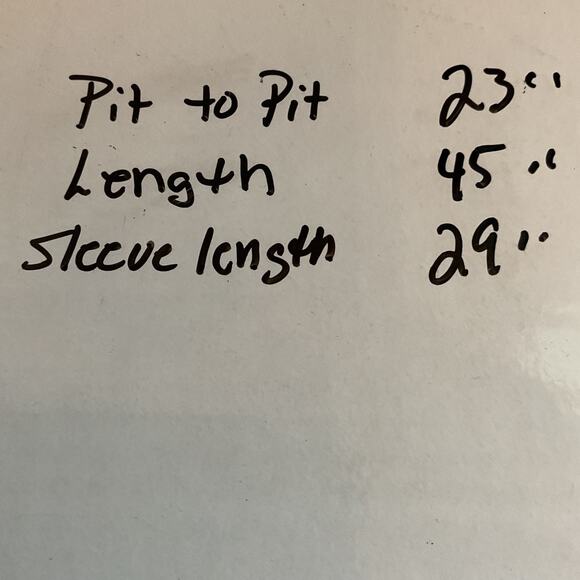 Pit to Pit 23"
Length 45"
Sleeve length 29"